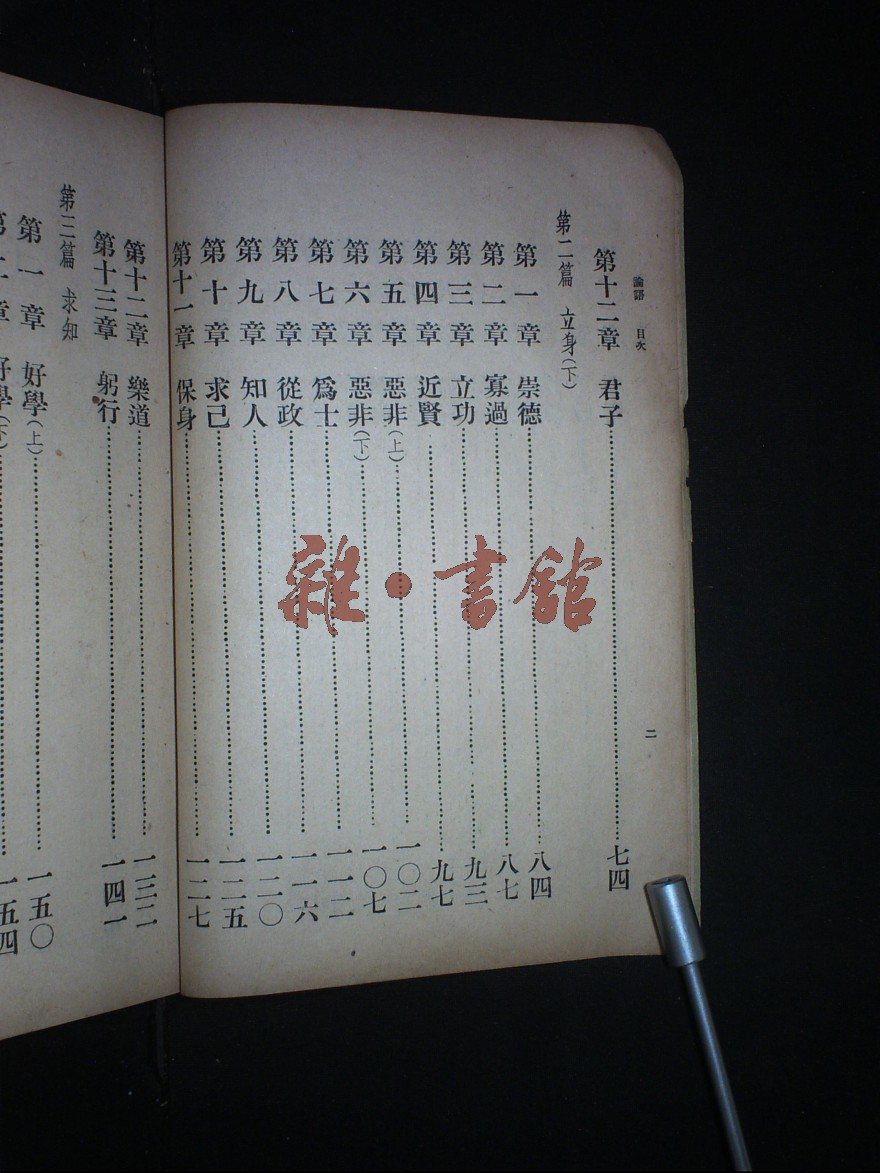 論語 目次
二
第十二章 君子……七四
第二篇 立身(下)
第一章 崇德……八四
第二章 寡過……八七
第三章 立功……九三
第四章 近賢……九七
第五章 惡非(上)……一〇二
第六章 惡非(下)……一〇七
第七章 爲士……一一二
第八章 從政……一一六
第九章 知人……一二〇
第十章 求己……一二五
第十一章 保身……一二七
第十二章 樂道……一三二
第十三章 躬行……一四一
第三篇 求知
第一章 好學(上)……一五〇
第二章 好學(下)……一五四
雜·書館